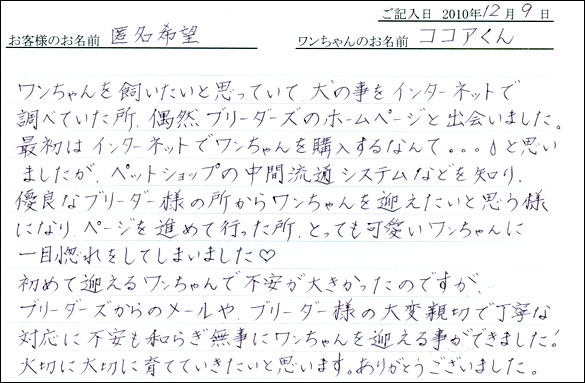 ご記入日 2010年12月9日
お客様のお名前 匿名希望 ワンちゃんのお名前 ココアくん
ワンちゃんを飼いたいと思っていて犬の事をインターネットで
調べていた所、偶然ブリーダーズのホームページと出会いました。
最初はインターネットでワンちゃんを購入するなんて...。と思い
ましたが、ペットショップの中間流通システムなどを知り、
優良なブリーダー様の所からワンちゃんを迎えたいと思う様
になり、ページを進めて行った所、とっても可愛いワンちゃんに
一目惚れをしてしまいました♡
初めて迎えるワンちゃんで不安が大きかったのですが、
ブリーダーズからのメールや、ブリーダー様の大変親切で丁寧な
対応に不安も和らぎ無事にワンちゃんを迎える事ができました!
大切に大切に育てていきたいと思います。ありがとうございました。